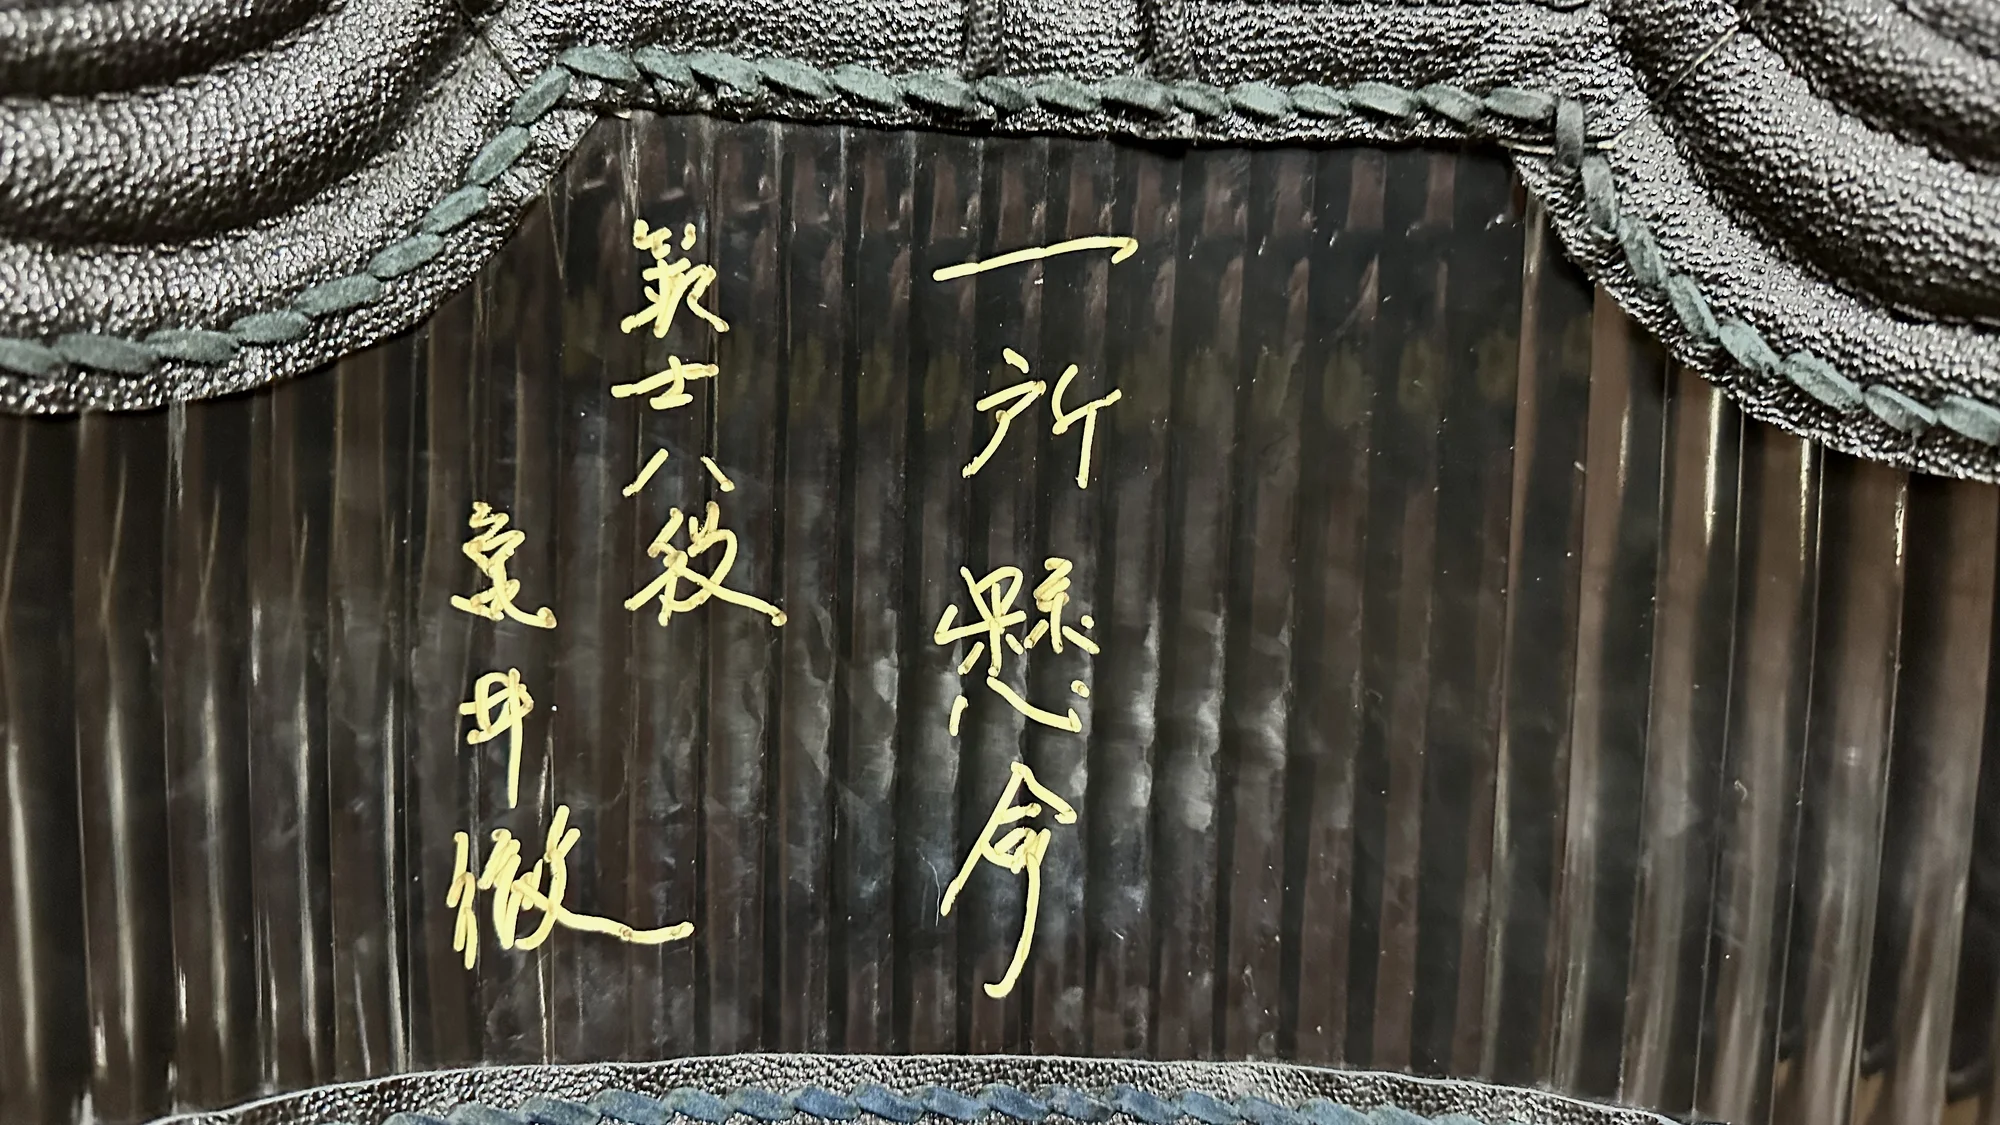 一所懸命
範士八段
亀井徹